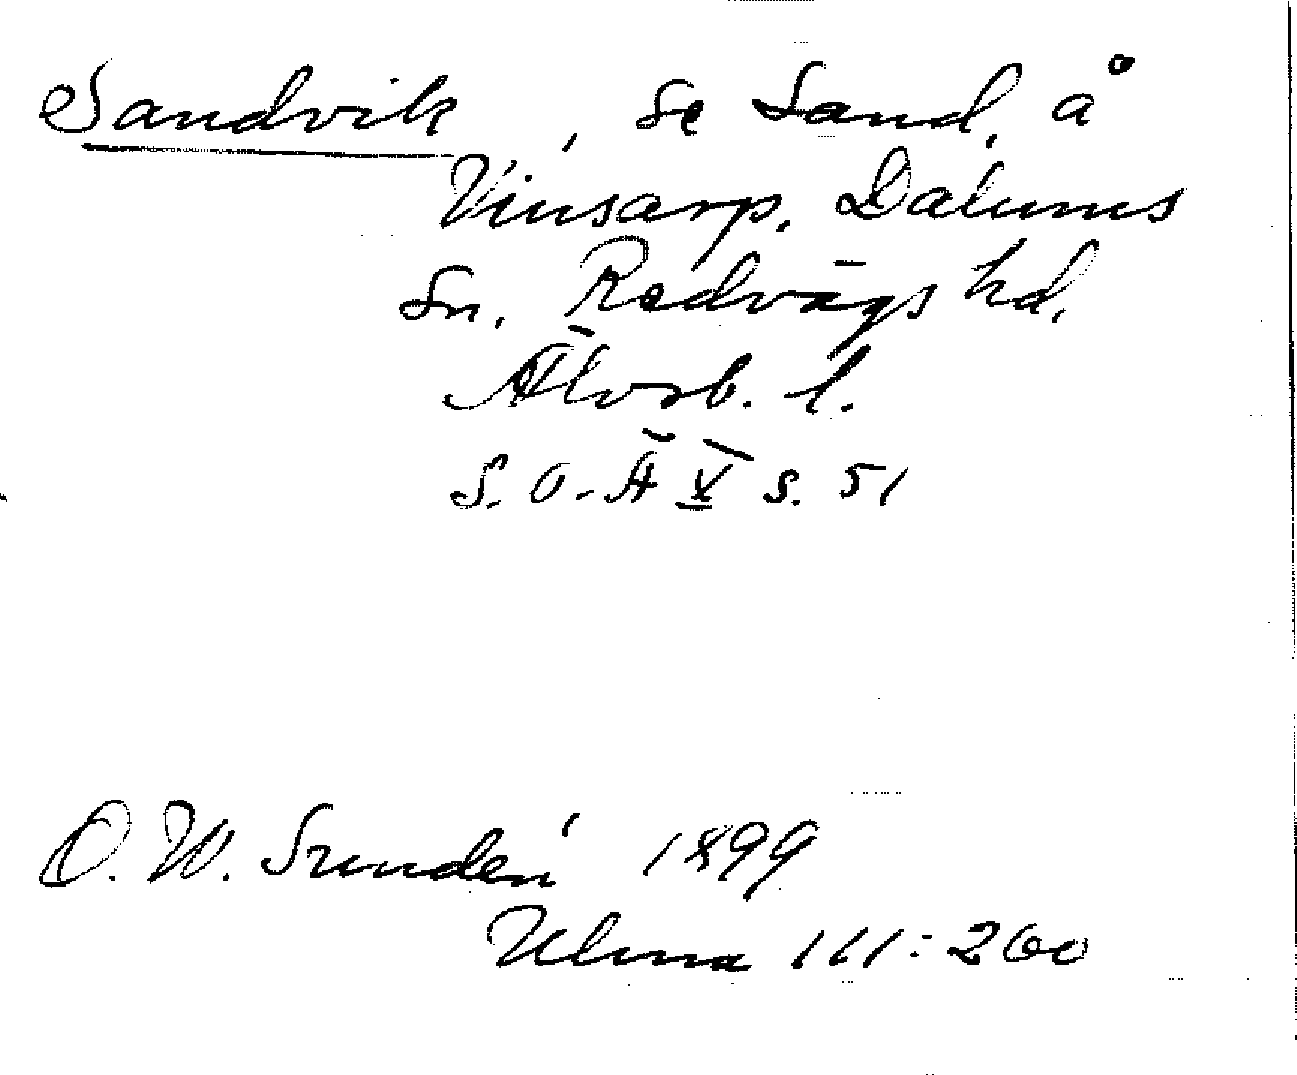 Sandvik, se Sand, å
Vinsarp, Dalums
sn. Redvägs hd,
Älvsb. l.
S.O.-Ä X s. 51
O.W. Sundén 1899
Ulma 111:260